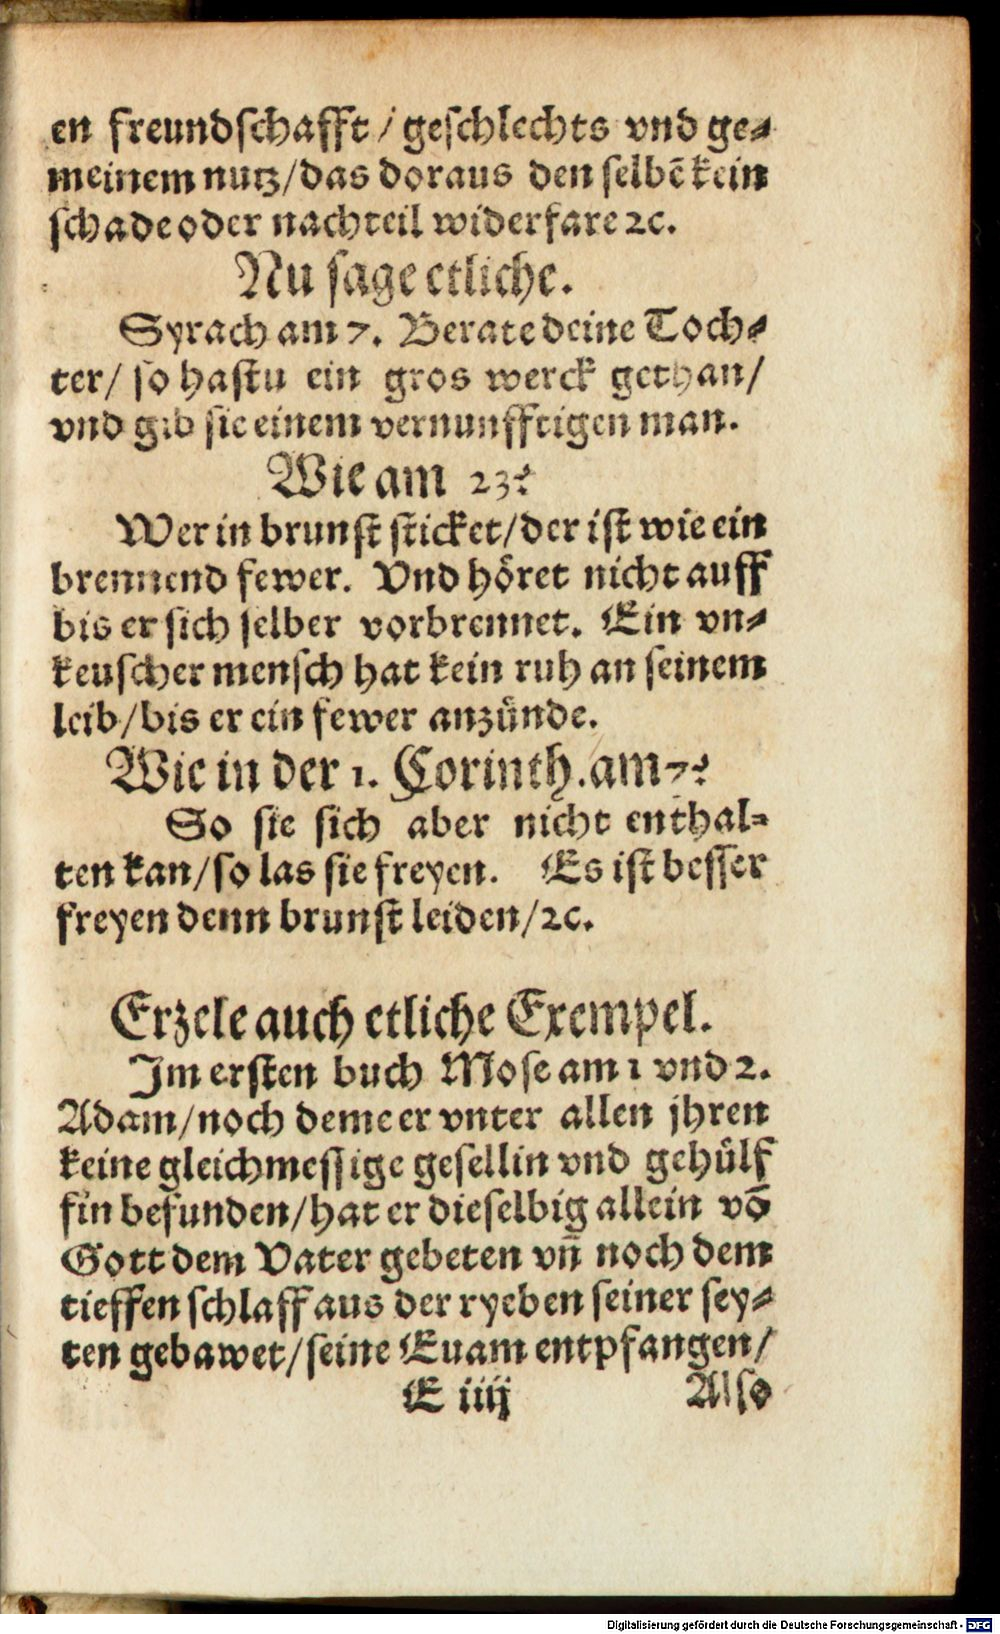 en freundschafft / geschlechts vnd ge⸗
meinem nutz/das doraus den selbē kein
schade oder nachteil widerfare ꝛc.
Nu sage etliche.
Syrach am 7. Berate deine Toch⸗
ter/ so hastu ein gros werck gethan/
vnd gib sie einem vernunfftigen man.
Wie am 23.
Wer in brunst sticket/der ist wie ein
brennend fewer. Vnd höret nicht auff
bis er sich selber vorbrennet. Ein vn⸗
keuscher mensch hat kein ruh an seinem
leib/bis er ein fewer anzünde.
Wie in der 1. Corinth. am 7.
So sie sich aber nicht enthal⸗
ten kan/so las sie freyen. Es ist besser
freyen denn brunst leiden/ꝛc.
Erzele auch etliche Exempel.
Im ersten buch Mose am 1 vnd 2.
Adam/noch deme er vnter allen jhren
keine gleichmessige gesellin vnd gehülf
fin befunden/hat er dieselbig allein vō
Gott dem Vater gebeten vn̄ noch dem
tieffen schlaff aus der ryeben seiner sey⸗
ten gebawet/seine Euam entpfangen/
E iiij Also
Digitalisierung gefördert durch die Deutsche Forschungsgemeinschaft - DFG